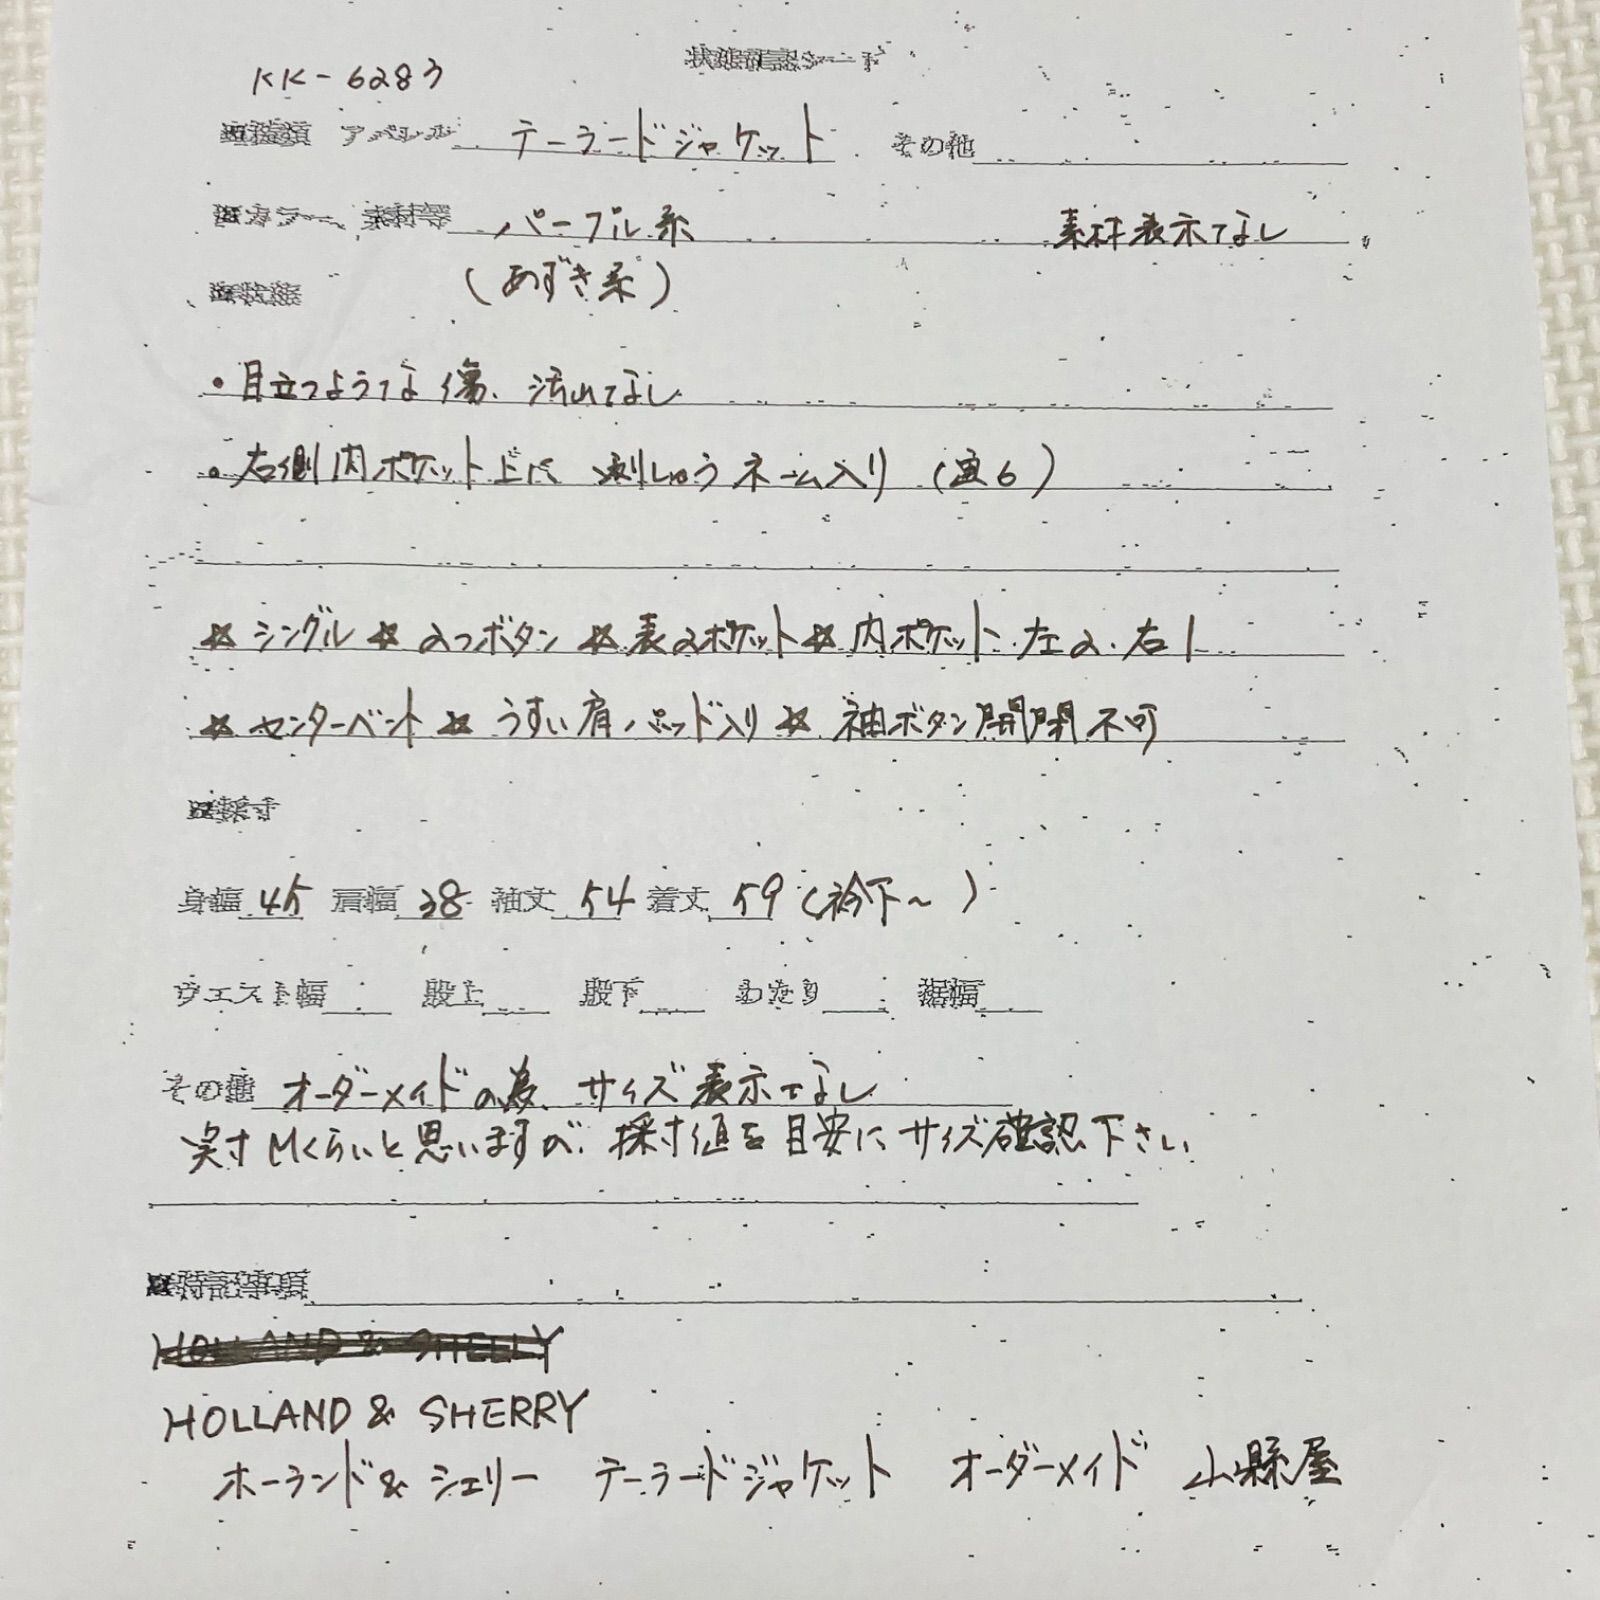 状態確認シート
KK-6283
■種類 アパレル テーラードジャケット その他
■カラー、素材等 パープル系 素材表示なし
(あずき系)
■状態
・目立つような傷、汚れなし
・右側内ポケット上に 刺しゅうネーム入り (画6)
☆シングル ☆2つボタン ☆表2ポケット ☆内ポケット 左2.右1
☆センターベント ☆うすい肩パッド入り ☆袖ボタン開閉不可
■採寸
身幅 45 肩幅 38 袖丈 54 着丈 59 (衿下~)
ウエスト幅 股上 股下 わたり 裾幅
その他 オーダーメイドの為、サイズ表示なし
実寸Mくらいと思いますが、採寸値を目安にサイズ確認下さい
■特記事項
HOLLAND & SHELLY
HOLLAND & SHERRY
ホーランド& シェリー テーラードジャケット オーダーメイド 山縣屋